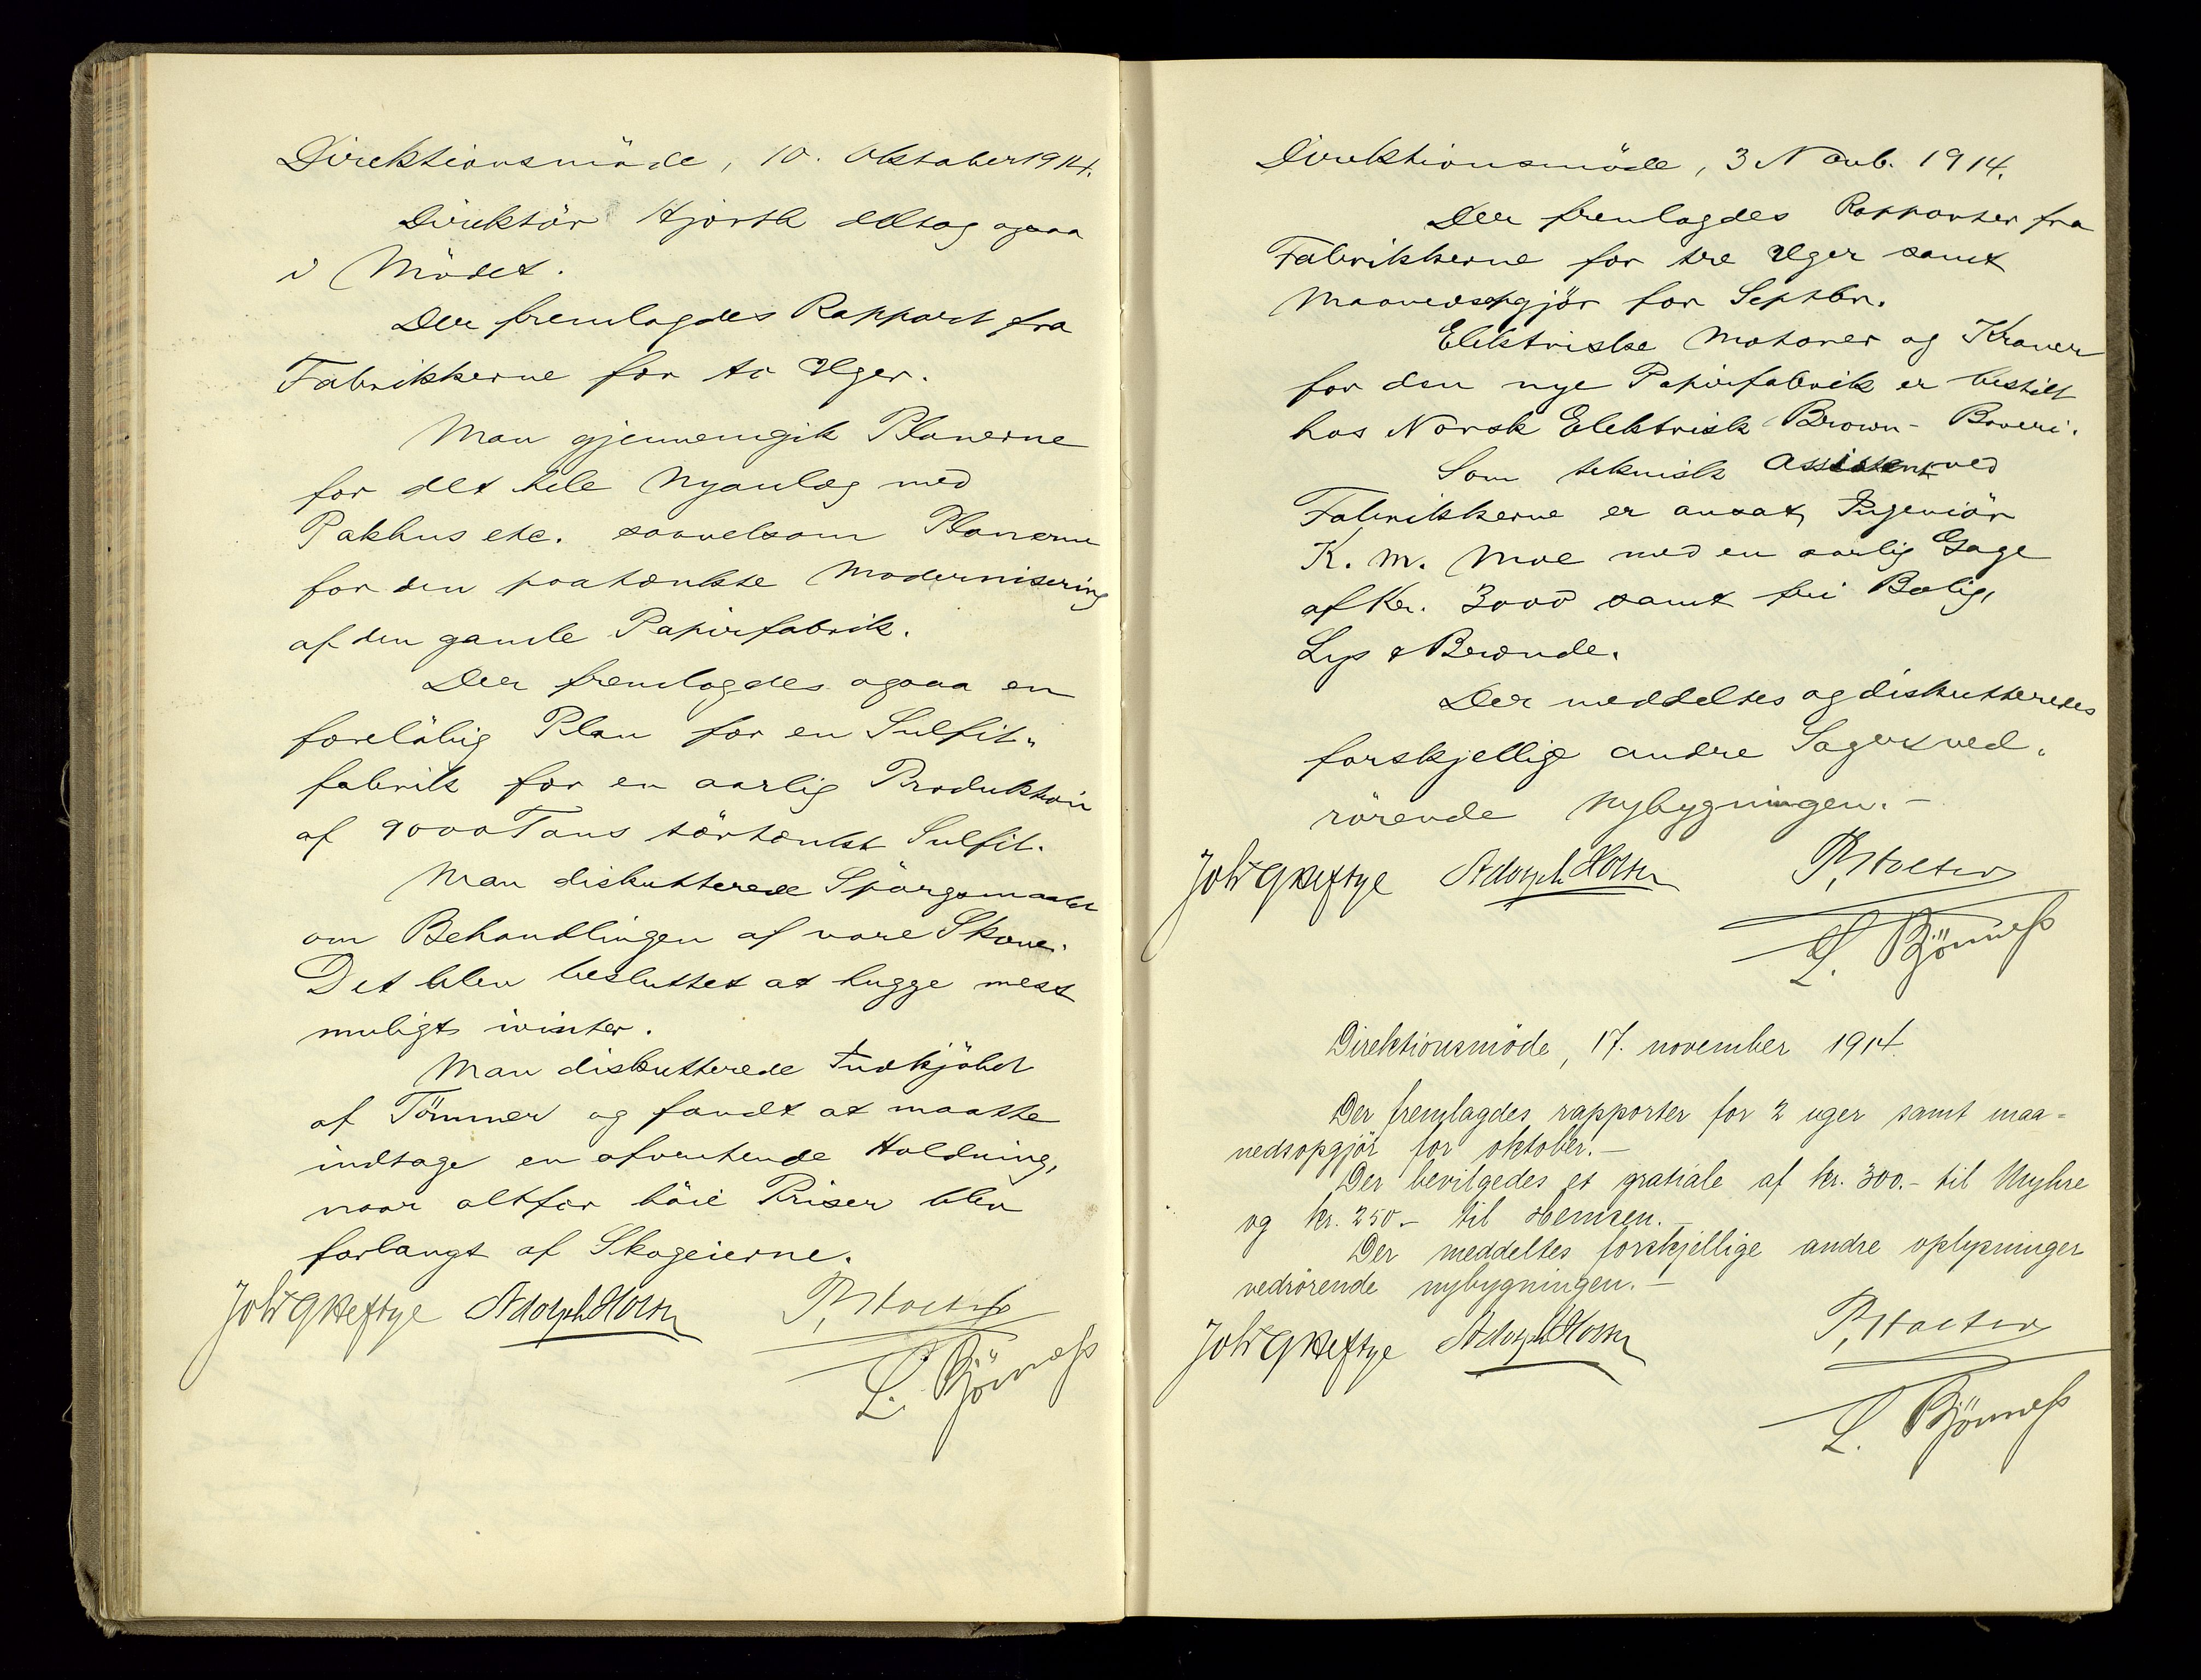 Direktionsmöde, 10. Oktober 1914.
Direktör Hjorth deltog ogsaa
i Mödet.
Der fremlagdes Rapport fra
Fabrikkerne for to Uger.
Man gjennemgik Planerne
for det hele Nyanlæg med
Pakhus etc. saavelsom Planerne
for den paatænkte Modernisering
af den gamle Papirfabrik.
Der fremlagdes ogsaa en
forelöbig Plan for en Sulfit-
fabrik for en aarlig Produktion
af 9000 Tons törtænkt Sulfit.
Man diskutterede Spörgsmaalet
om Behandlingen af vore Skove.
Det blev besluttet at hugge mest
muligt ivinter.
Man diskutterede Indkjöbet
af Tömmer og fandt at maatte
indtage en afventende Holdning,
naar altfor höie Priser blev
forlangt af Skogeierne.
Joh's G Heftye Adolph Holm P. Holter
L. Bjönness
Direktionsmöde, 3 Novb. 1914.
Der fremlagdes Rapporter fra
Fabrikkerne for tre Uger samt
Maanedsopgjör for Septbr.
Elektriske Motorer og Kraner
for den nye Papirfabrik er bestilt
hos Norsk Elektrisk Brown-Boveri.
Som teknisk Assistent ved
Fabrikkerne er ansat Ingeniör
K. M. Moe med en aarlig Gage
af Kr. 3000 samt fri Bolig,
Lys & Brænde.
Der meddeltes og diskutteredes
forskjellige andre Sager ved-
rörende Nybygningen. –
Joh's G Heftye Adolph Holm P. Holter
L. Bjönness
Direktionsmöde, 17. november 1914.
Der fremlagdes rapporter for 2 uger samt maa-
nedsopgjör for oktober. –
Der bevilgedes et gratiale af kr. 300.- til Myhre
og kr. 250.- til Hemsen. –
Der meddeltes forskjellige andre oplysninger
vedrörende nybygningen. –
Joh's G Heftye Adolph Holm P. Holter
L. Bjönness